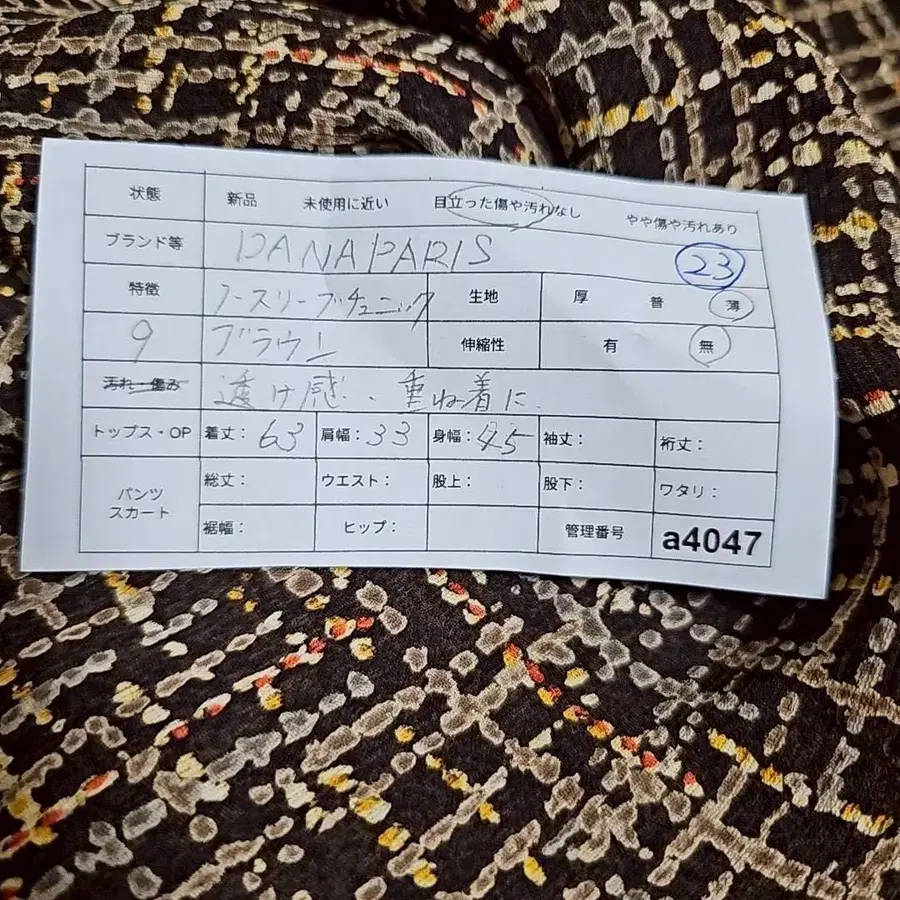 状態 新品 未使用に近い 目立った傷や汚れなし やや傷や汚れあり
ブランド等 DANA PARIS 23
特徴 ノースリーブチュニック 生地 厚 普 薄
9 ブラウン 伸縮性 有 無
汚れ・傷み 透け感、重ね着に.
トップス・OP 着丈：63 肩幅：33 身幅：45 袖丈： 裄丈：
パンツ
スカート
総丈： ウエスト： 股上： 股下： ワタリ：
裾幅： ヒップ： 管理番号 a4047